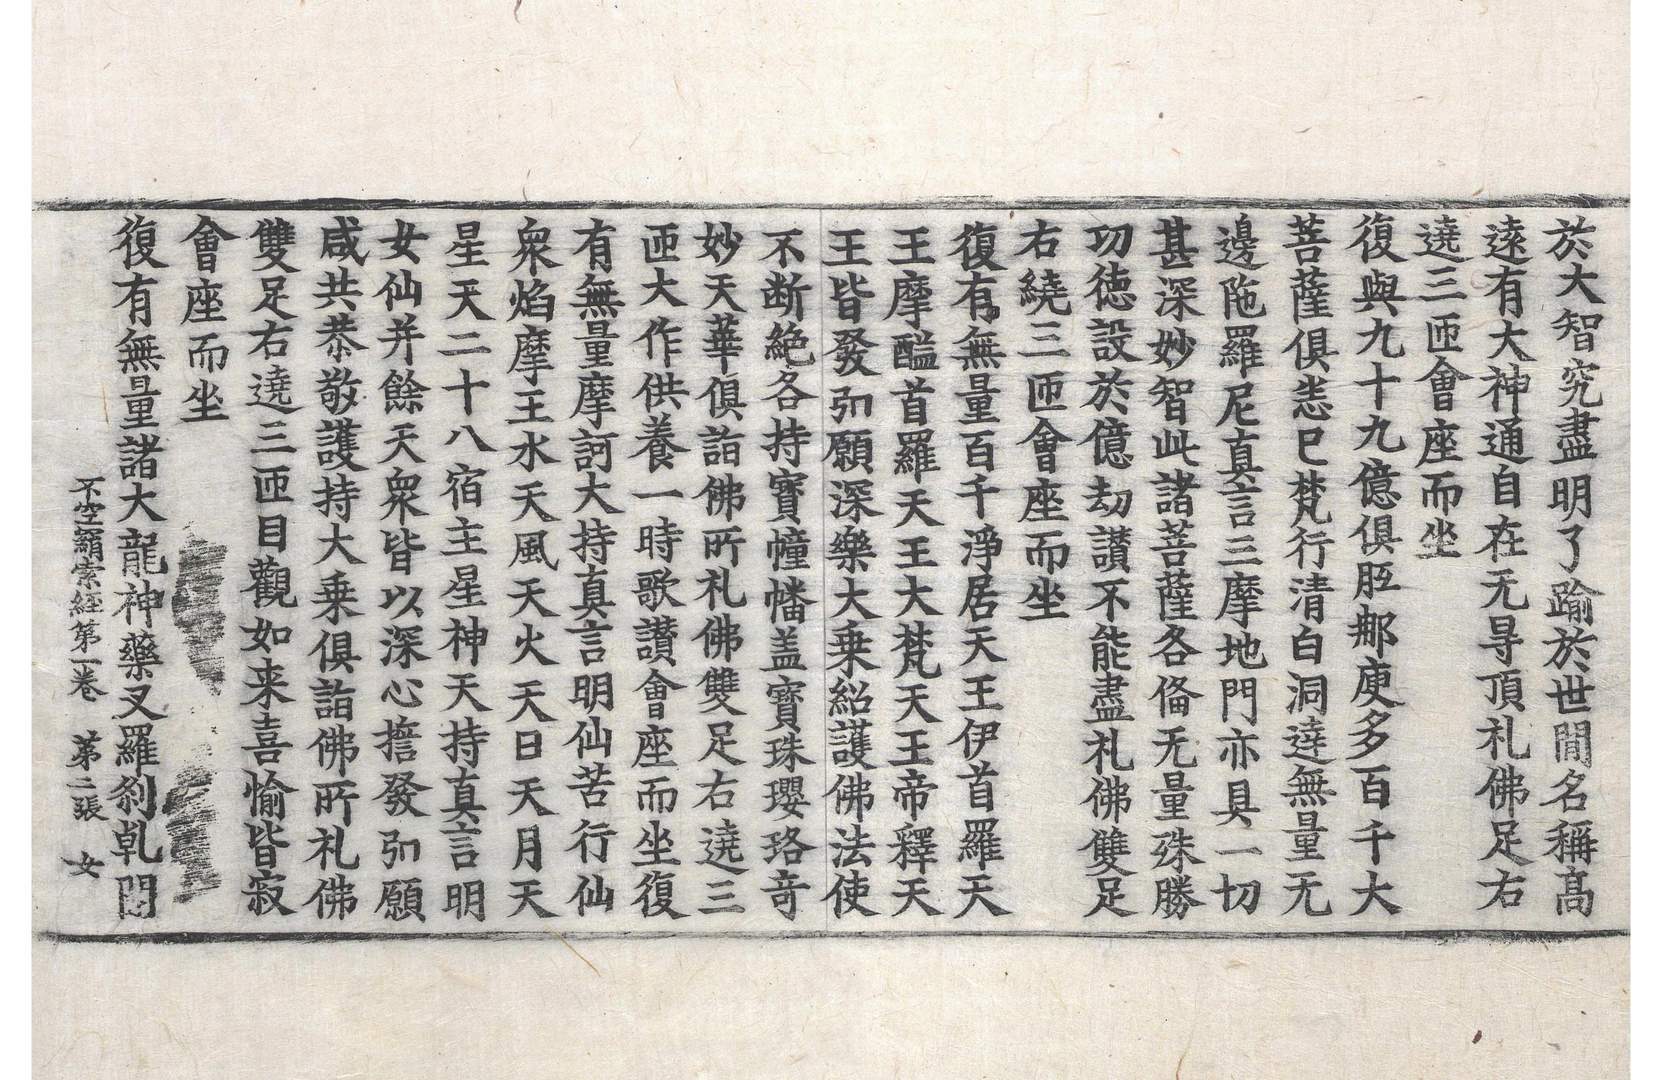 於大智究盡明了踰於世間名稱髙
逺有大神通自在无㝵頂礼佛足右
遶三匝會座而坐
復與九十九億俱胝那庾多百千大
菩薩俱悉已梵行清白洞達無量无
邊陁羅尼真言三摩地門亦具一切
甚深妙智此諸菩薩各俻无量殊勝
功德設於億劫讃不能盡礼佛雙足
右繞三匝會座而坐
復有無量百千淨居天王伊首羅天
王摩醯首羅天王大梵天王帝釋天
王皆發弘願深樂大乗紹護佛法使
不断絶各持寶幢幡盖寶珠瓔珞竒
妙天華俱詣佛所礼佛雙足右遶三
匝大作供養一時歌讃會座而坐復
有無量摩訶大持真言明仙苦行仙
衆焰摩王水天風天火天日天月天
星天二十八宿主星神天持真言明
女仙并餘天衆皆以深心擔發弘願
咸共恭敬護持大乗俱詣佛所礼佛
雙足右遶三匝目觀如来喜愉皆寂
會座而坐
復有無量諸大龍神藥叉羅刹乹闥
不空羂索經第一卷 第二張 女